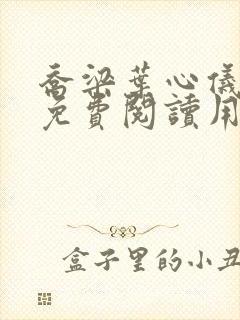 喬梁葉心儀
免費閱讀用
盒子里的小丑